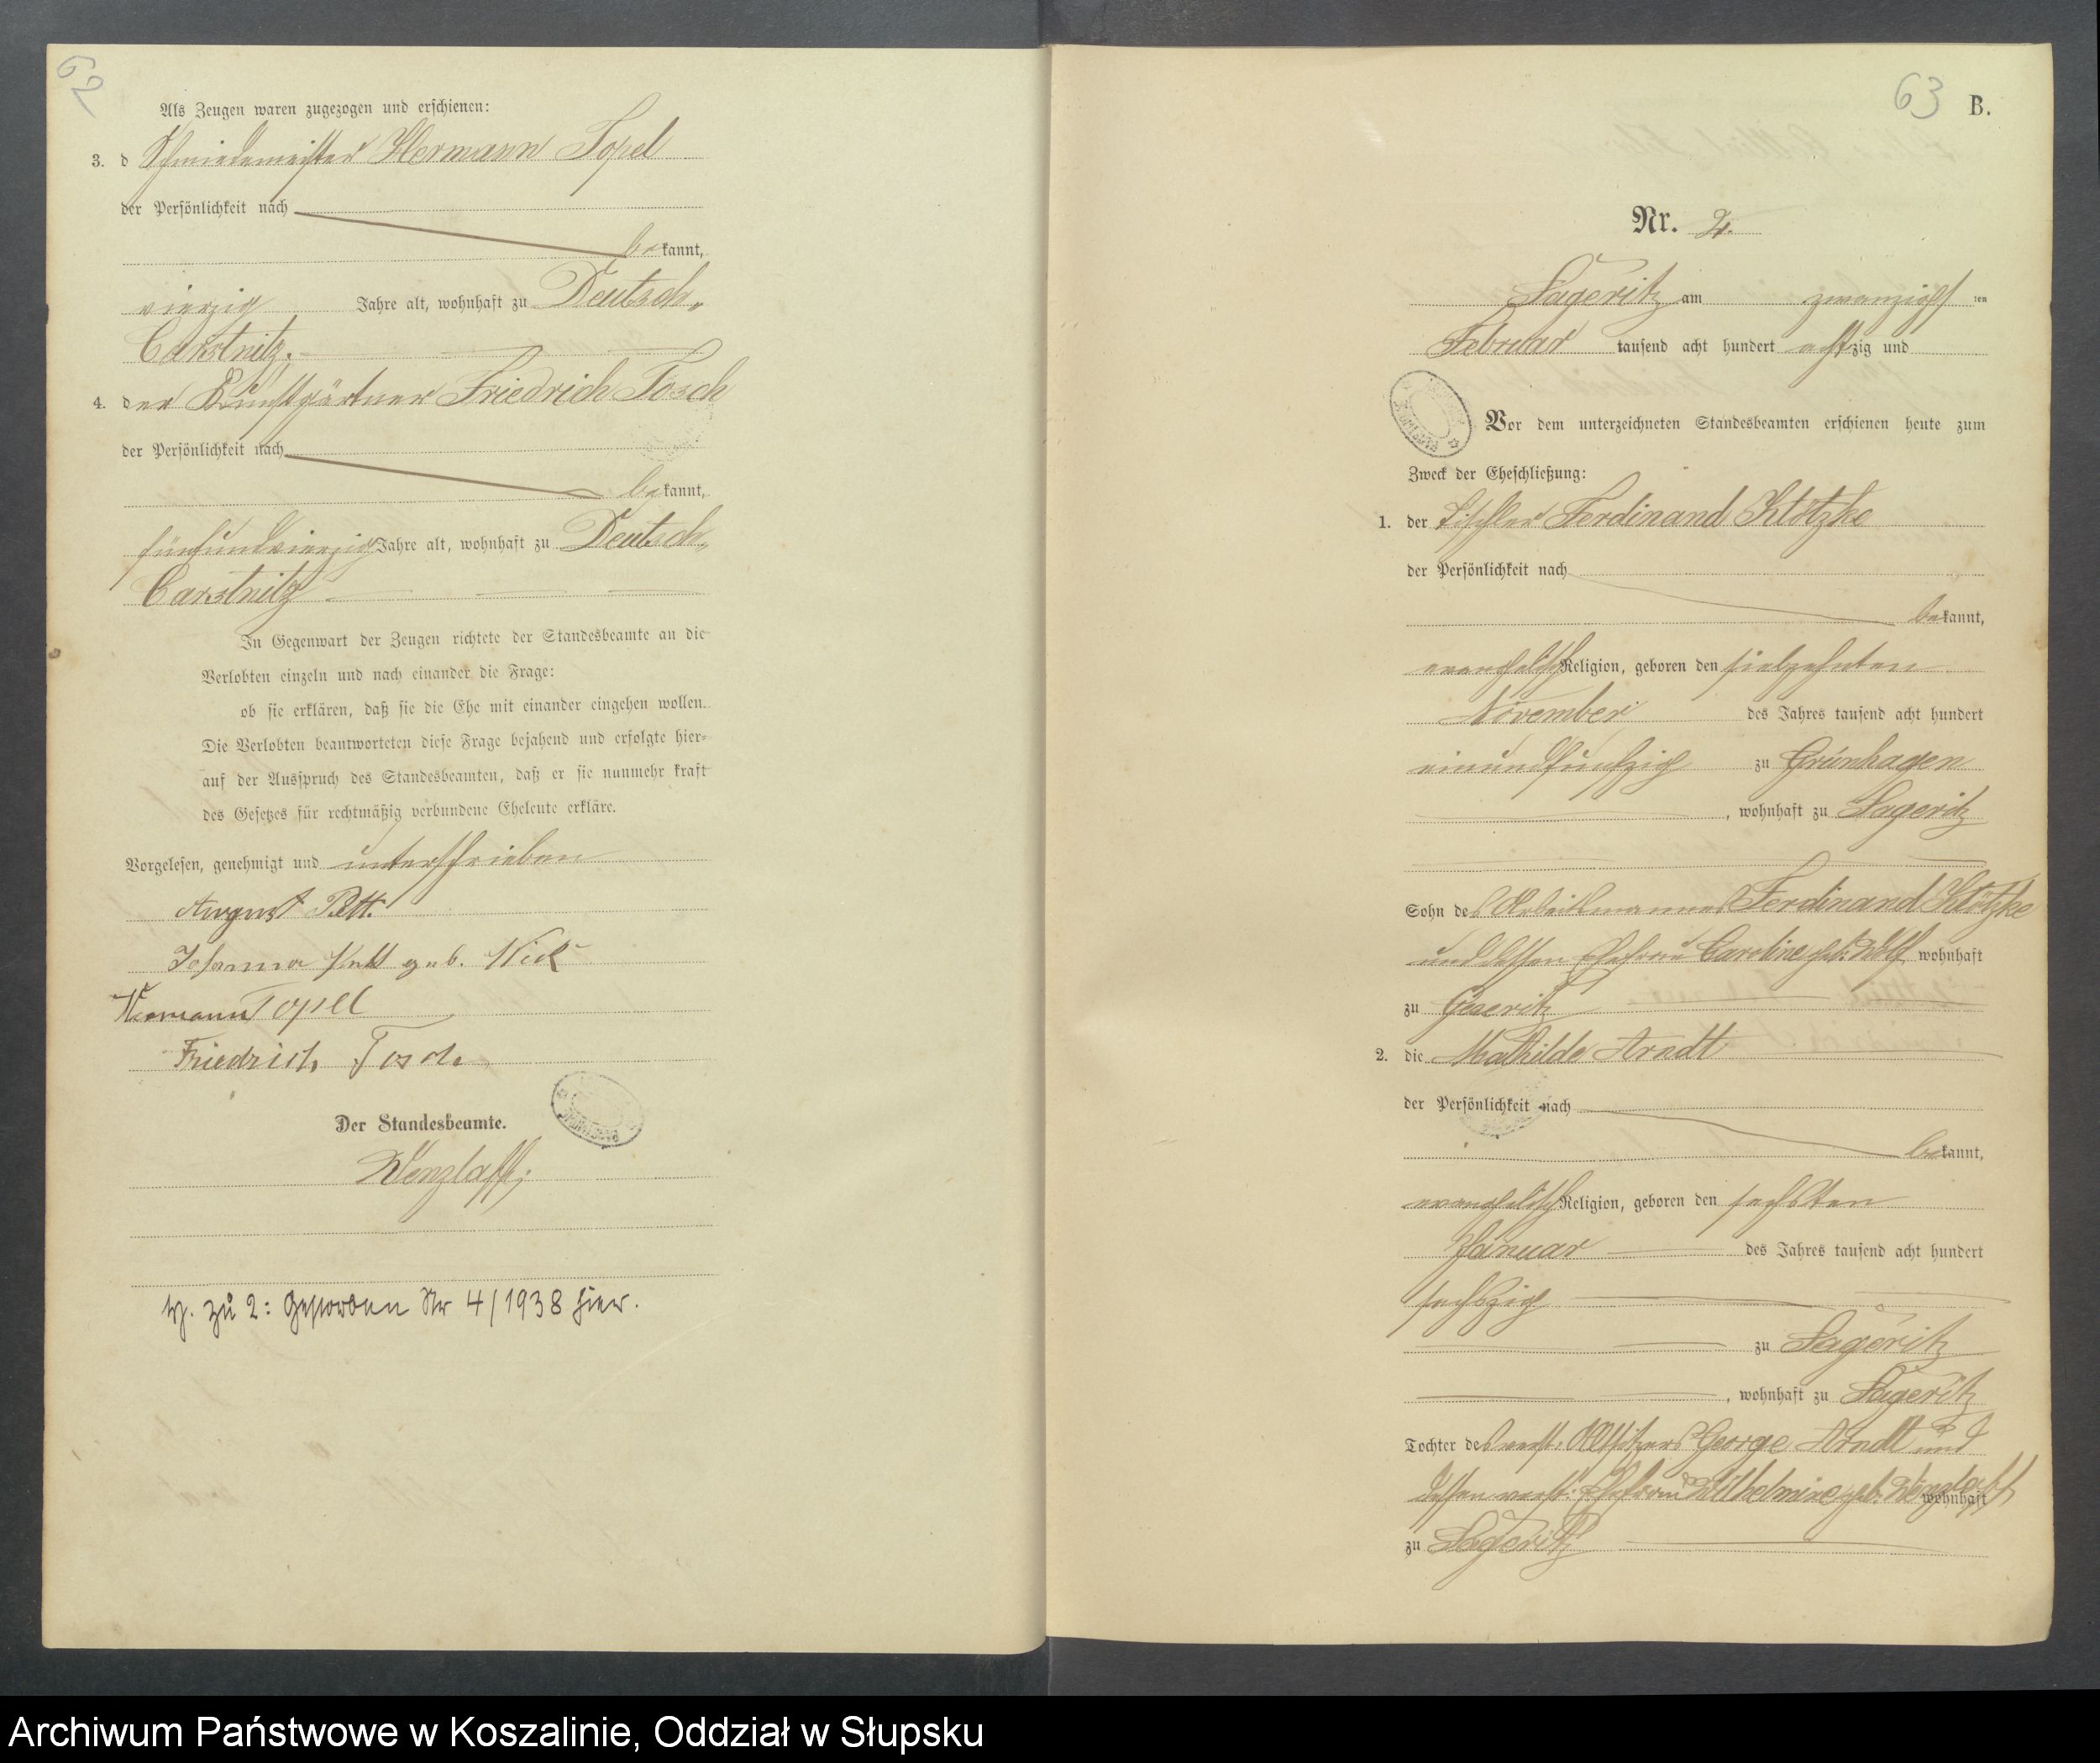 62
Als Zeugen waren zugezogen und erschienen:
3. d Schmiedemeister Hermann Topel
der Persönlichkeit nach
bekannt,
vierzig Jahre alt, wohnhaft zu Deutsch-
Carstnitz.
4. der Kunstgärtner Friedrich Tosch
der Persönlichkeit nach
bekannt,
fünfundvierzig Jahre alt, wohnhaft zu Deutsch-
Carstnitz
In Gegenwart der Zeugen richtete der Standesbeamte an die
Verlobten einzeln und nach einander die Frage:
ob sie erklären, daß sie die Ehe mit einander eingehen wollen.
Die Verlobten beantworteten diese Frage bejahend und erfolgte hier-
auf der Ausspruch des Standesbeamten, daß er sie nunmehr kraft
des Gesetzes für rechtmäßig verbundene Eheleute erkläre.
Vorgelesen, genehmigt und unterschrieben
August
Johanna geb.
Hermann Topel
Friedrich Tosch
Der Standesbeamte.
Wenzlaff.
zu 2: Gestorben Nr 4/1938 hier.
63 B.
Nr. 2.
Lageritz am zwanzigsten
Februar tausend acht hundert achtzig und
Vor dem unterzeichneten Standesbeamten erschienen heute zum
Zweck der Eheschließung:
1. der Tischler Ferdinand Klötzke
der Persönlichkeit nach
bekannt,
evangelisch Religion, geboren den siebzehnten
November des Jahres tausend acht hundert
einundfunfzig zu Grünhagen
, wohnhaft zu Lageritz
Sohn des Arbeitsmannes Ferdinand Klötzke
und dessen Ehefrau Caroline geb. Wolf wohnhaft
zu
2. die Mathilde Arndt
der Persönlichkeit nach
bekannt,
evangelisch Religion, geboren den sechsten
Januar des Jahres tausend acht hundert
sechszig
zu Lageritz
, wohnhaft zu Lageritz
Tochter des verst. Altsitzers George Arndt und
dessen verst. Ehefrau Wilhelmine geb. Wenzlaff wohnhaft
zu Lageritz
Archiwum Państwowe w Koszalinie, Oddział w Słupsku